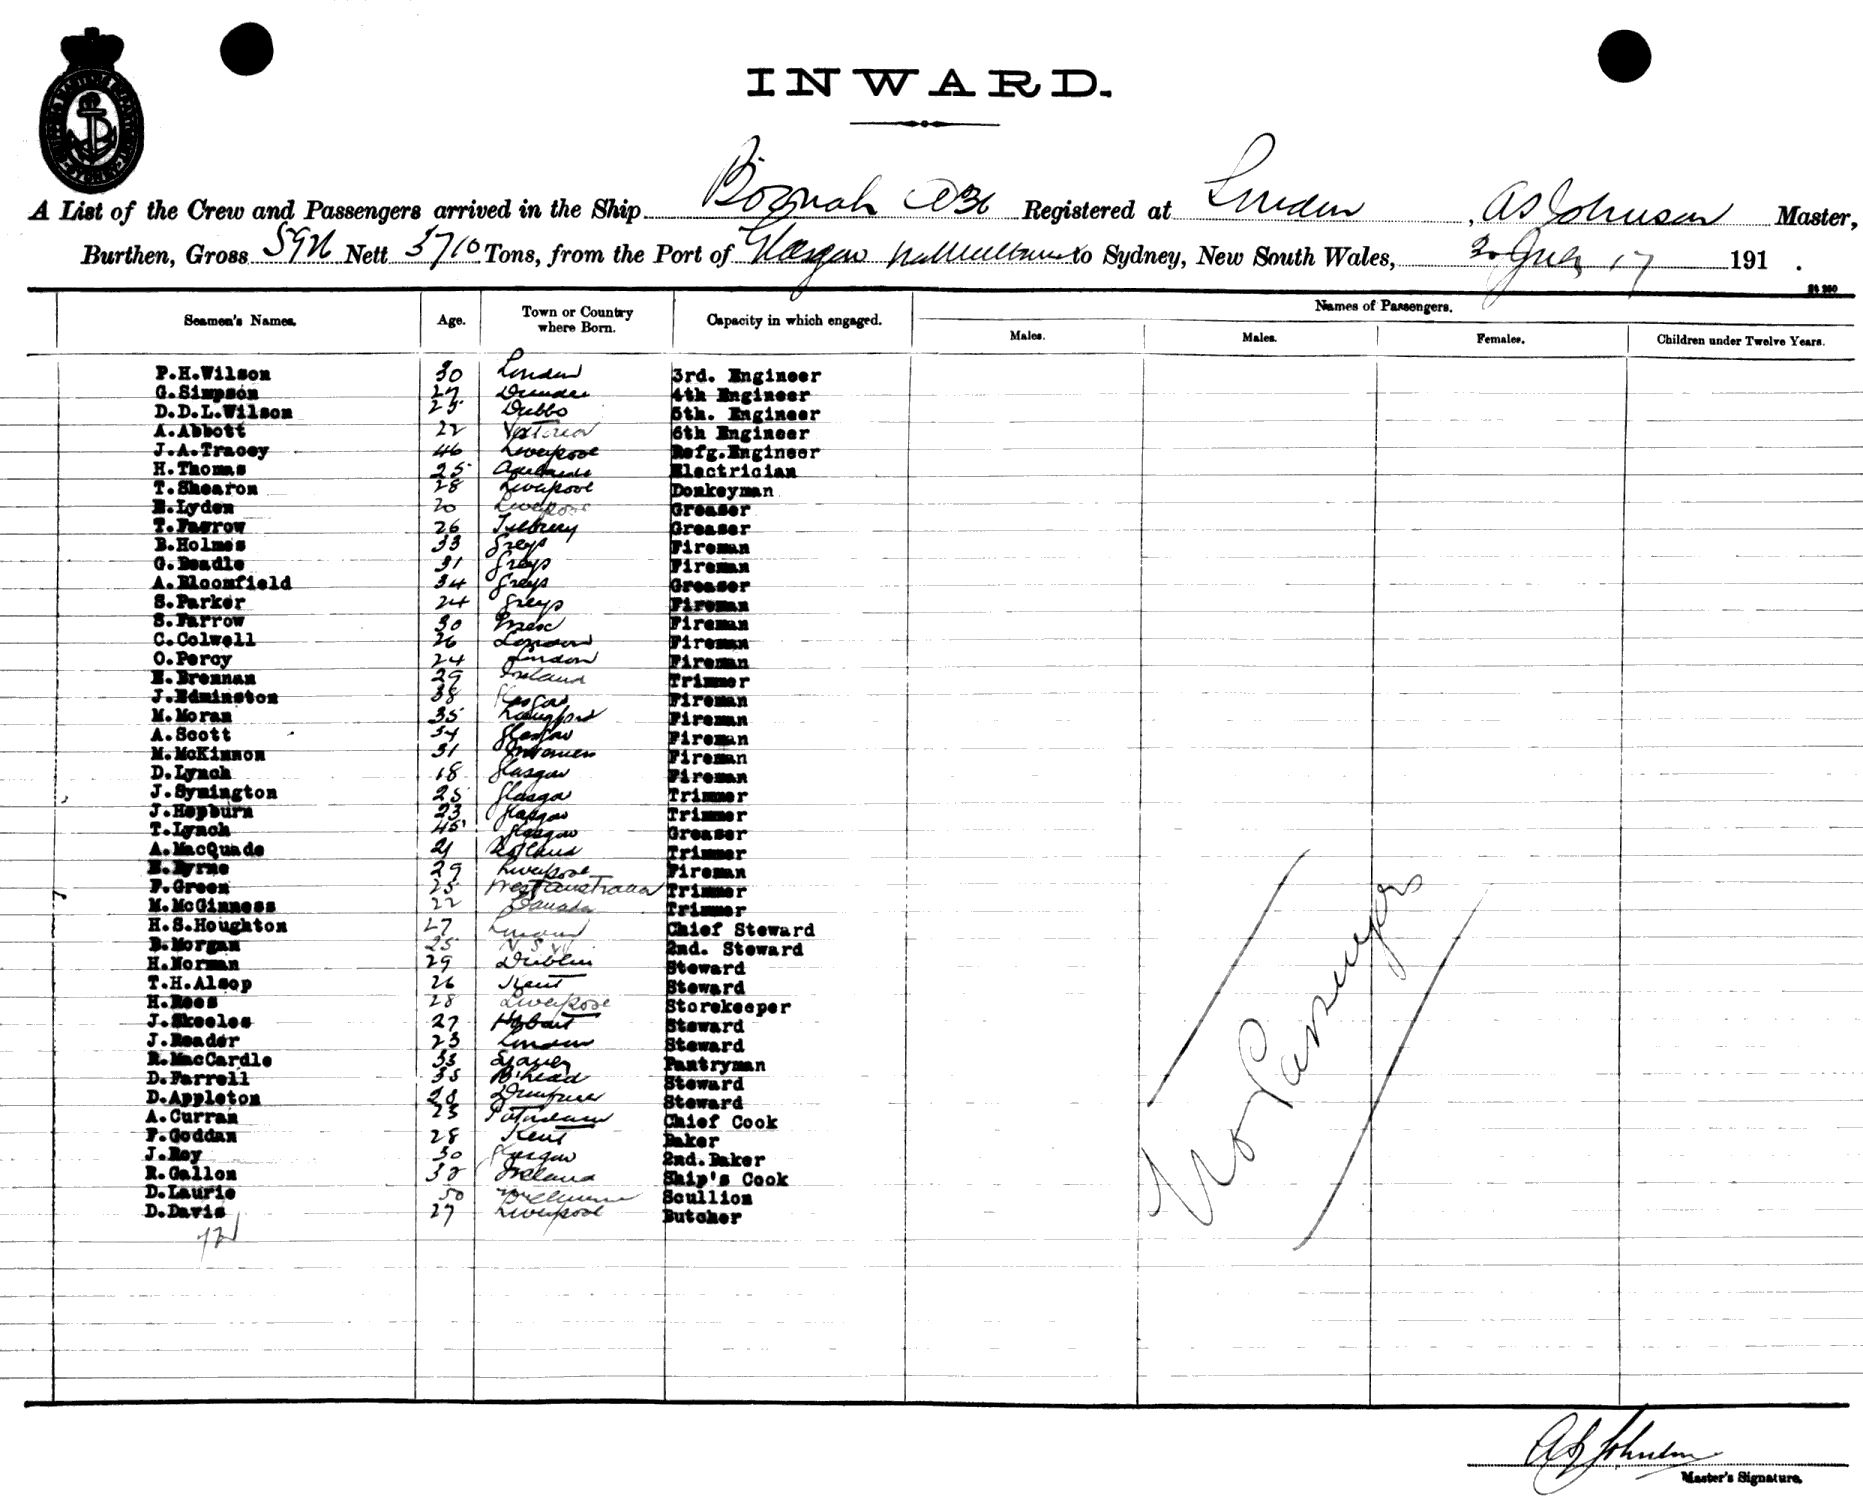 INWARD.
A List of the Crew and Passengers arrived in the Ship Boonah Registered at London, A S Johnson Master,
Burthen, Gross Nett 3710 Tons, from the Port of Glasgow to Sydney, New South Wales, 17 191 .
Seamen's Names. Age. Town or Country where Born. Capacity in which engaged. Names of Passengers.
Males. Males. Females. Children under Twelve Years.
P.H.Wilson 30 London 3rd. Engineer
G.Simpson 27 Dundee 4th Engineer
D.D.L.Wilson 25 Dubbo 5th. Engineer
A.Abbott 22 Victoria 6th Engineer
J.A.Tracey 46 Liverpool Refg.Engineer
H.Thomas 25 Adelaide Electrician
T.Shearon 28 Liverpool Donkeyman
E.Lyden 20 Liverpool Greaser
T.Farrow 26 Tilbury Greaser
B.Holmes 33 Greys Fireman
G.Beadle 31 Greys Fireman
A.Bloomfield 34 Greys Greaser
S.Parker 24 Greys Fireman
S.Farrow 30 Essex Fireman
C.Colwell 26 London Fireman
O.Percy 24 London Fireman
E.Brennan 29 Ireland Trimmer
J.Edminston 38 Glasgow Fireman
M.Moran 35 Longford Fireman
A.Scott 34 Glasgow Fireman
M.McKinnon 31 Inverness Fireman
D.Lynch 18 Glasgow Fireman
J.Symington 25 Glasgow Trimmer
J.Hepburn 23 Glasgow Trimmer
T.Lynch 45 Glasgow Greaser
A.MacQuade 21 Trimmer
E.Byrne 29 Liverpool Fireman
F.Green 25 West Australia Trimmer
M.McGinness 22 Canada Trimmer
H.S.Houghton 27 Chief Steward
B.Morgan 25 N S W 2nd. Steward
H.Norman 29 Dublin Steward
T.H.Alsop 26 Kent Steward
H.Rees 28 Liverpool Storekeeper
J.Skeeles 27 Hobart Steward
J.Reader 23 London Steward
R.MacCardle 33 Pantryman
D.Farrell 35 B'head Steward
D.Appleton 28 Steward
A.Curran 23 Chief Cook
F.Goddan 28 Kent Baker
J.Roy 30 Glasgow 2nd.Baker
R.Gallon 38 Ireland Ship's Cook
D.Laurie 50 Melbourne Scullion
D.Davis 27 Liverpool Butcher
No Passengers
A S Johnson
Master's Signature.